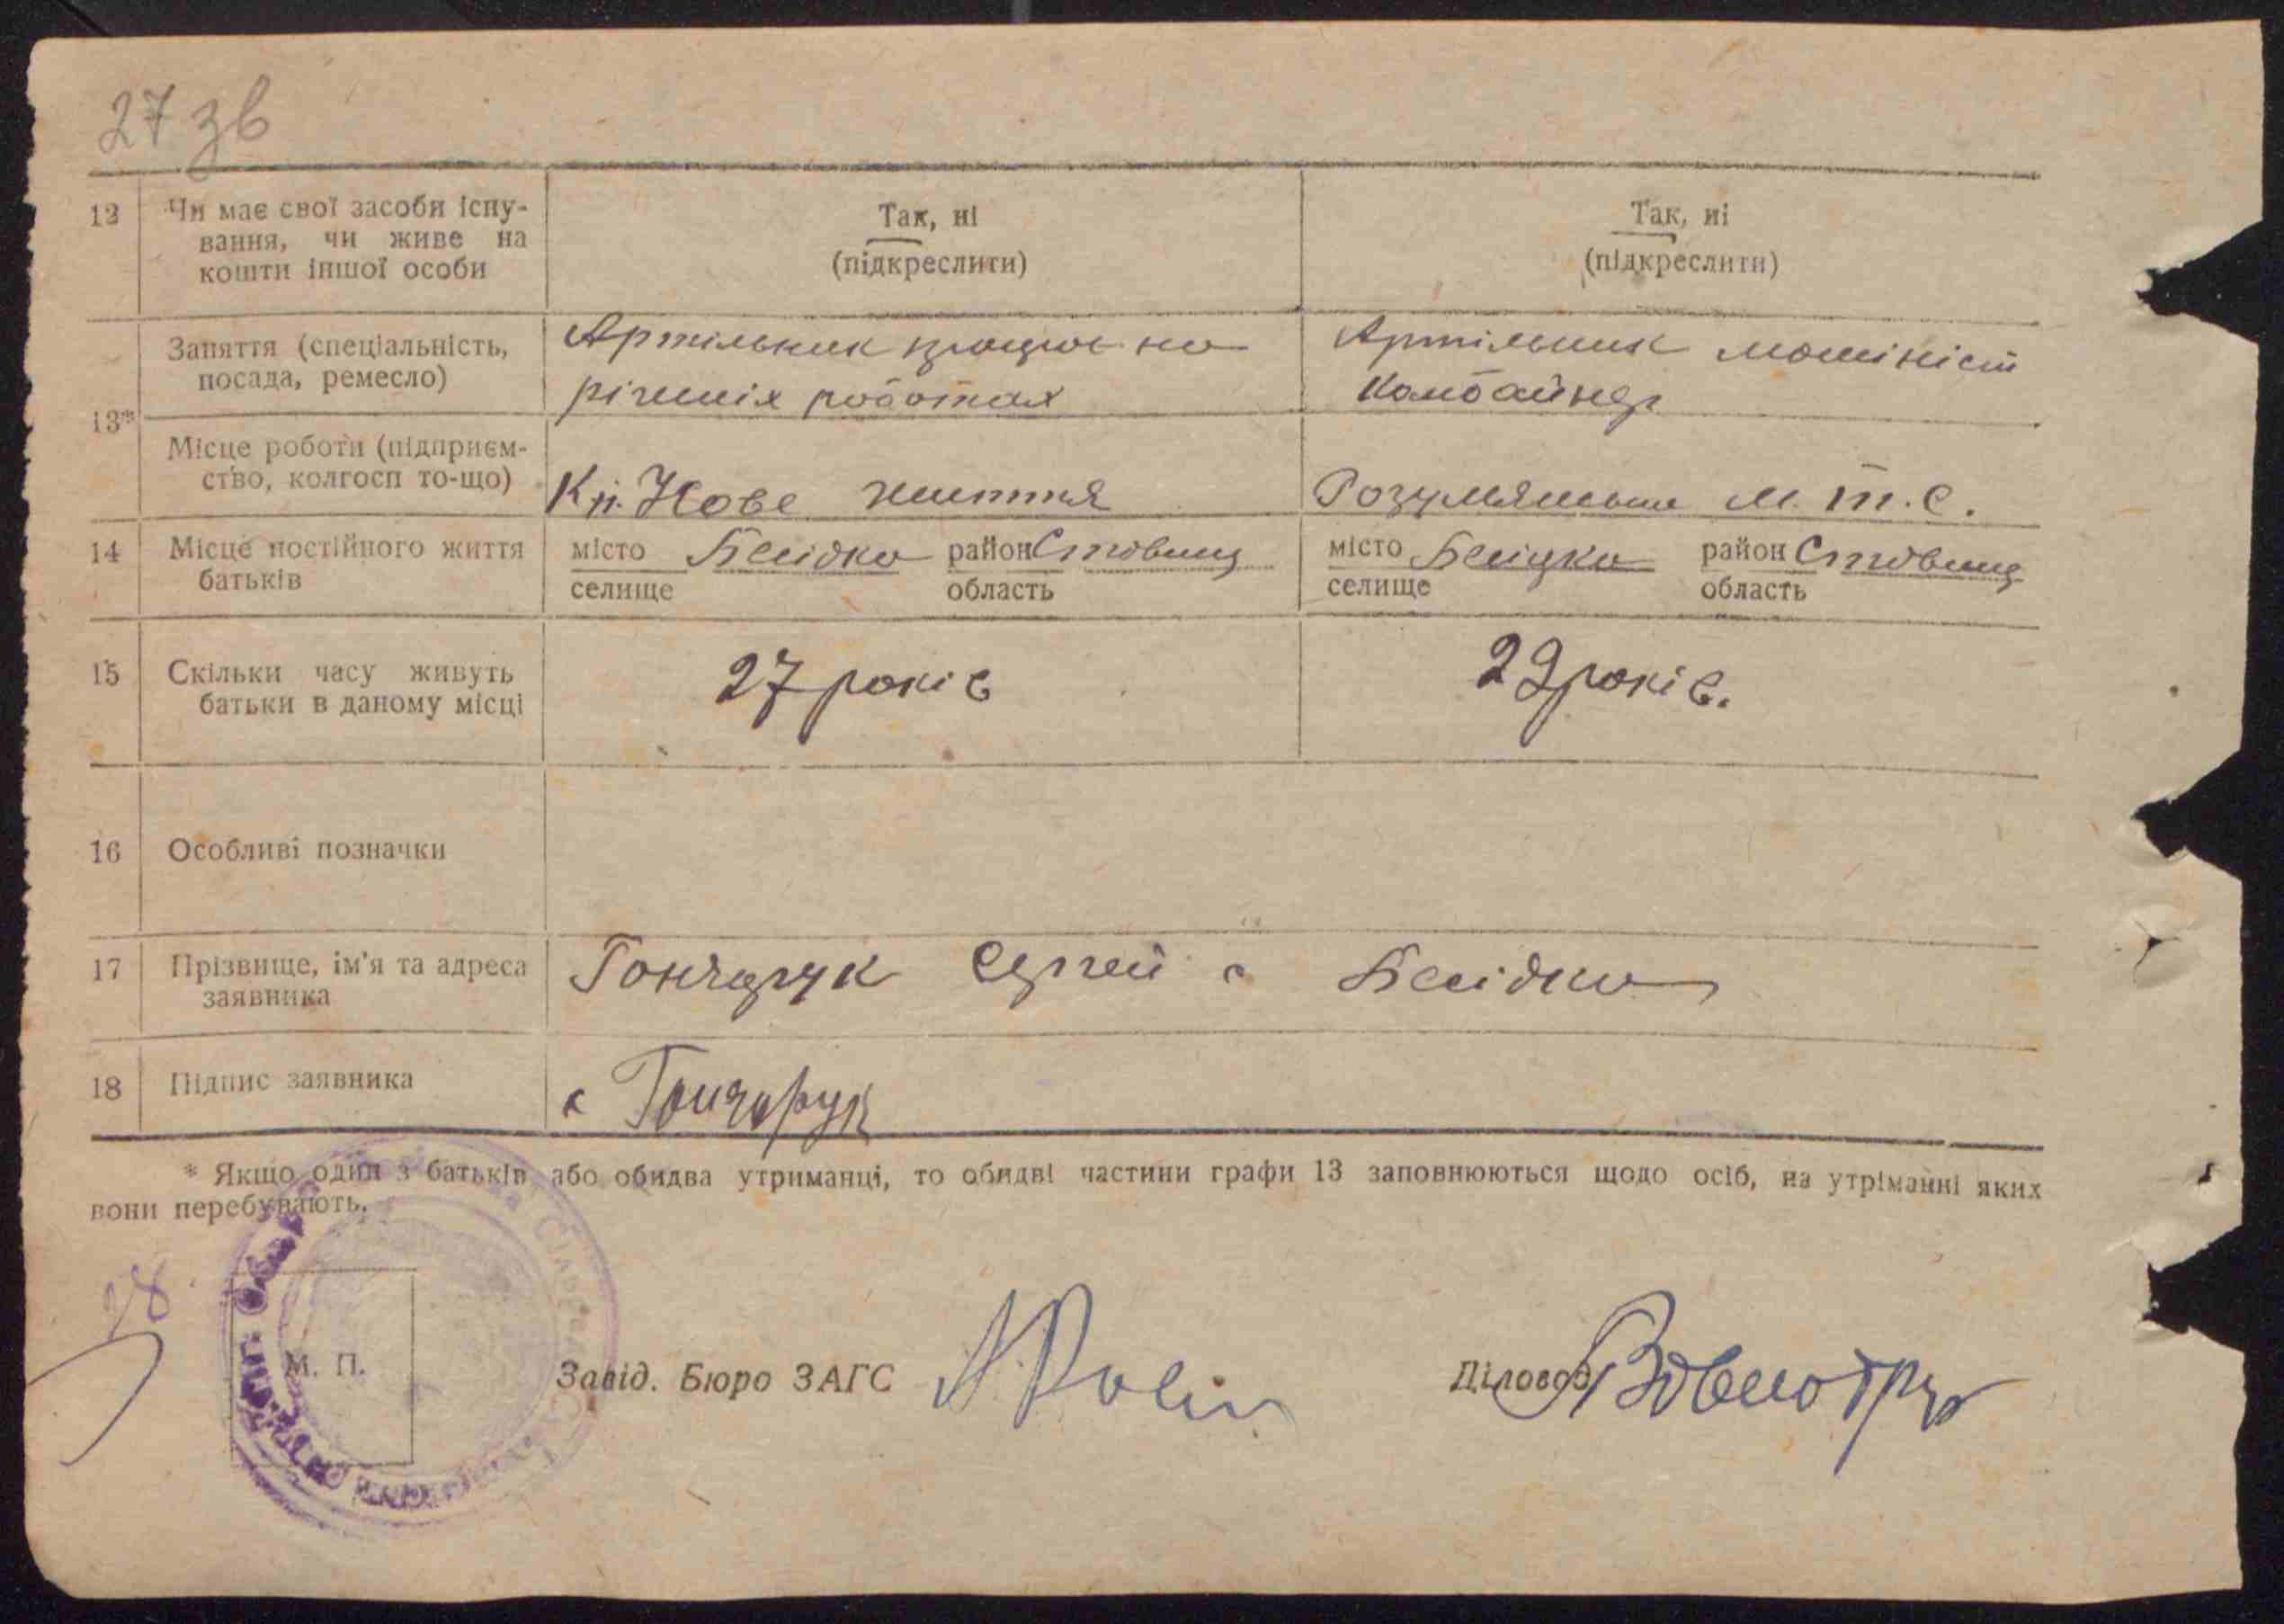 27 зв
12 Чи має свої засоби існу- Так, ні Так, ні
вання, чи живе на (підкреслити) (підкреслити)
кошти іншої особи
13* Заняття (спеціальність, Артільник працює на Артільник машініст
посада, ремесло) різних роботах Комбайнер
Місце роботи (підприєм-
ство, колгосп то-що) Нове життя м.т.с.
14 Місце постійного життя місто Бесідка район Ставищ місто район Ставищ
батьків селище область селище область
15 Скільки часу живуть 27 років 29 років.
батьки в даному місці
16 Особливі позначки
17 Прізвище, ім'я та адреса Гончарук Сергей с Бесідка
заявника
18 Підпис заявника с Гончарук
* Якщо один з батьків або обидва утриманці, то обидві частини графи 13 заповнюються щодо осіб, на утріманні яких
вони перебувають.
28
М. П. Завід. Бюро ЗАГС Діловод